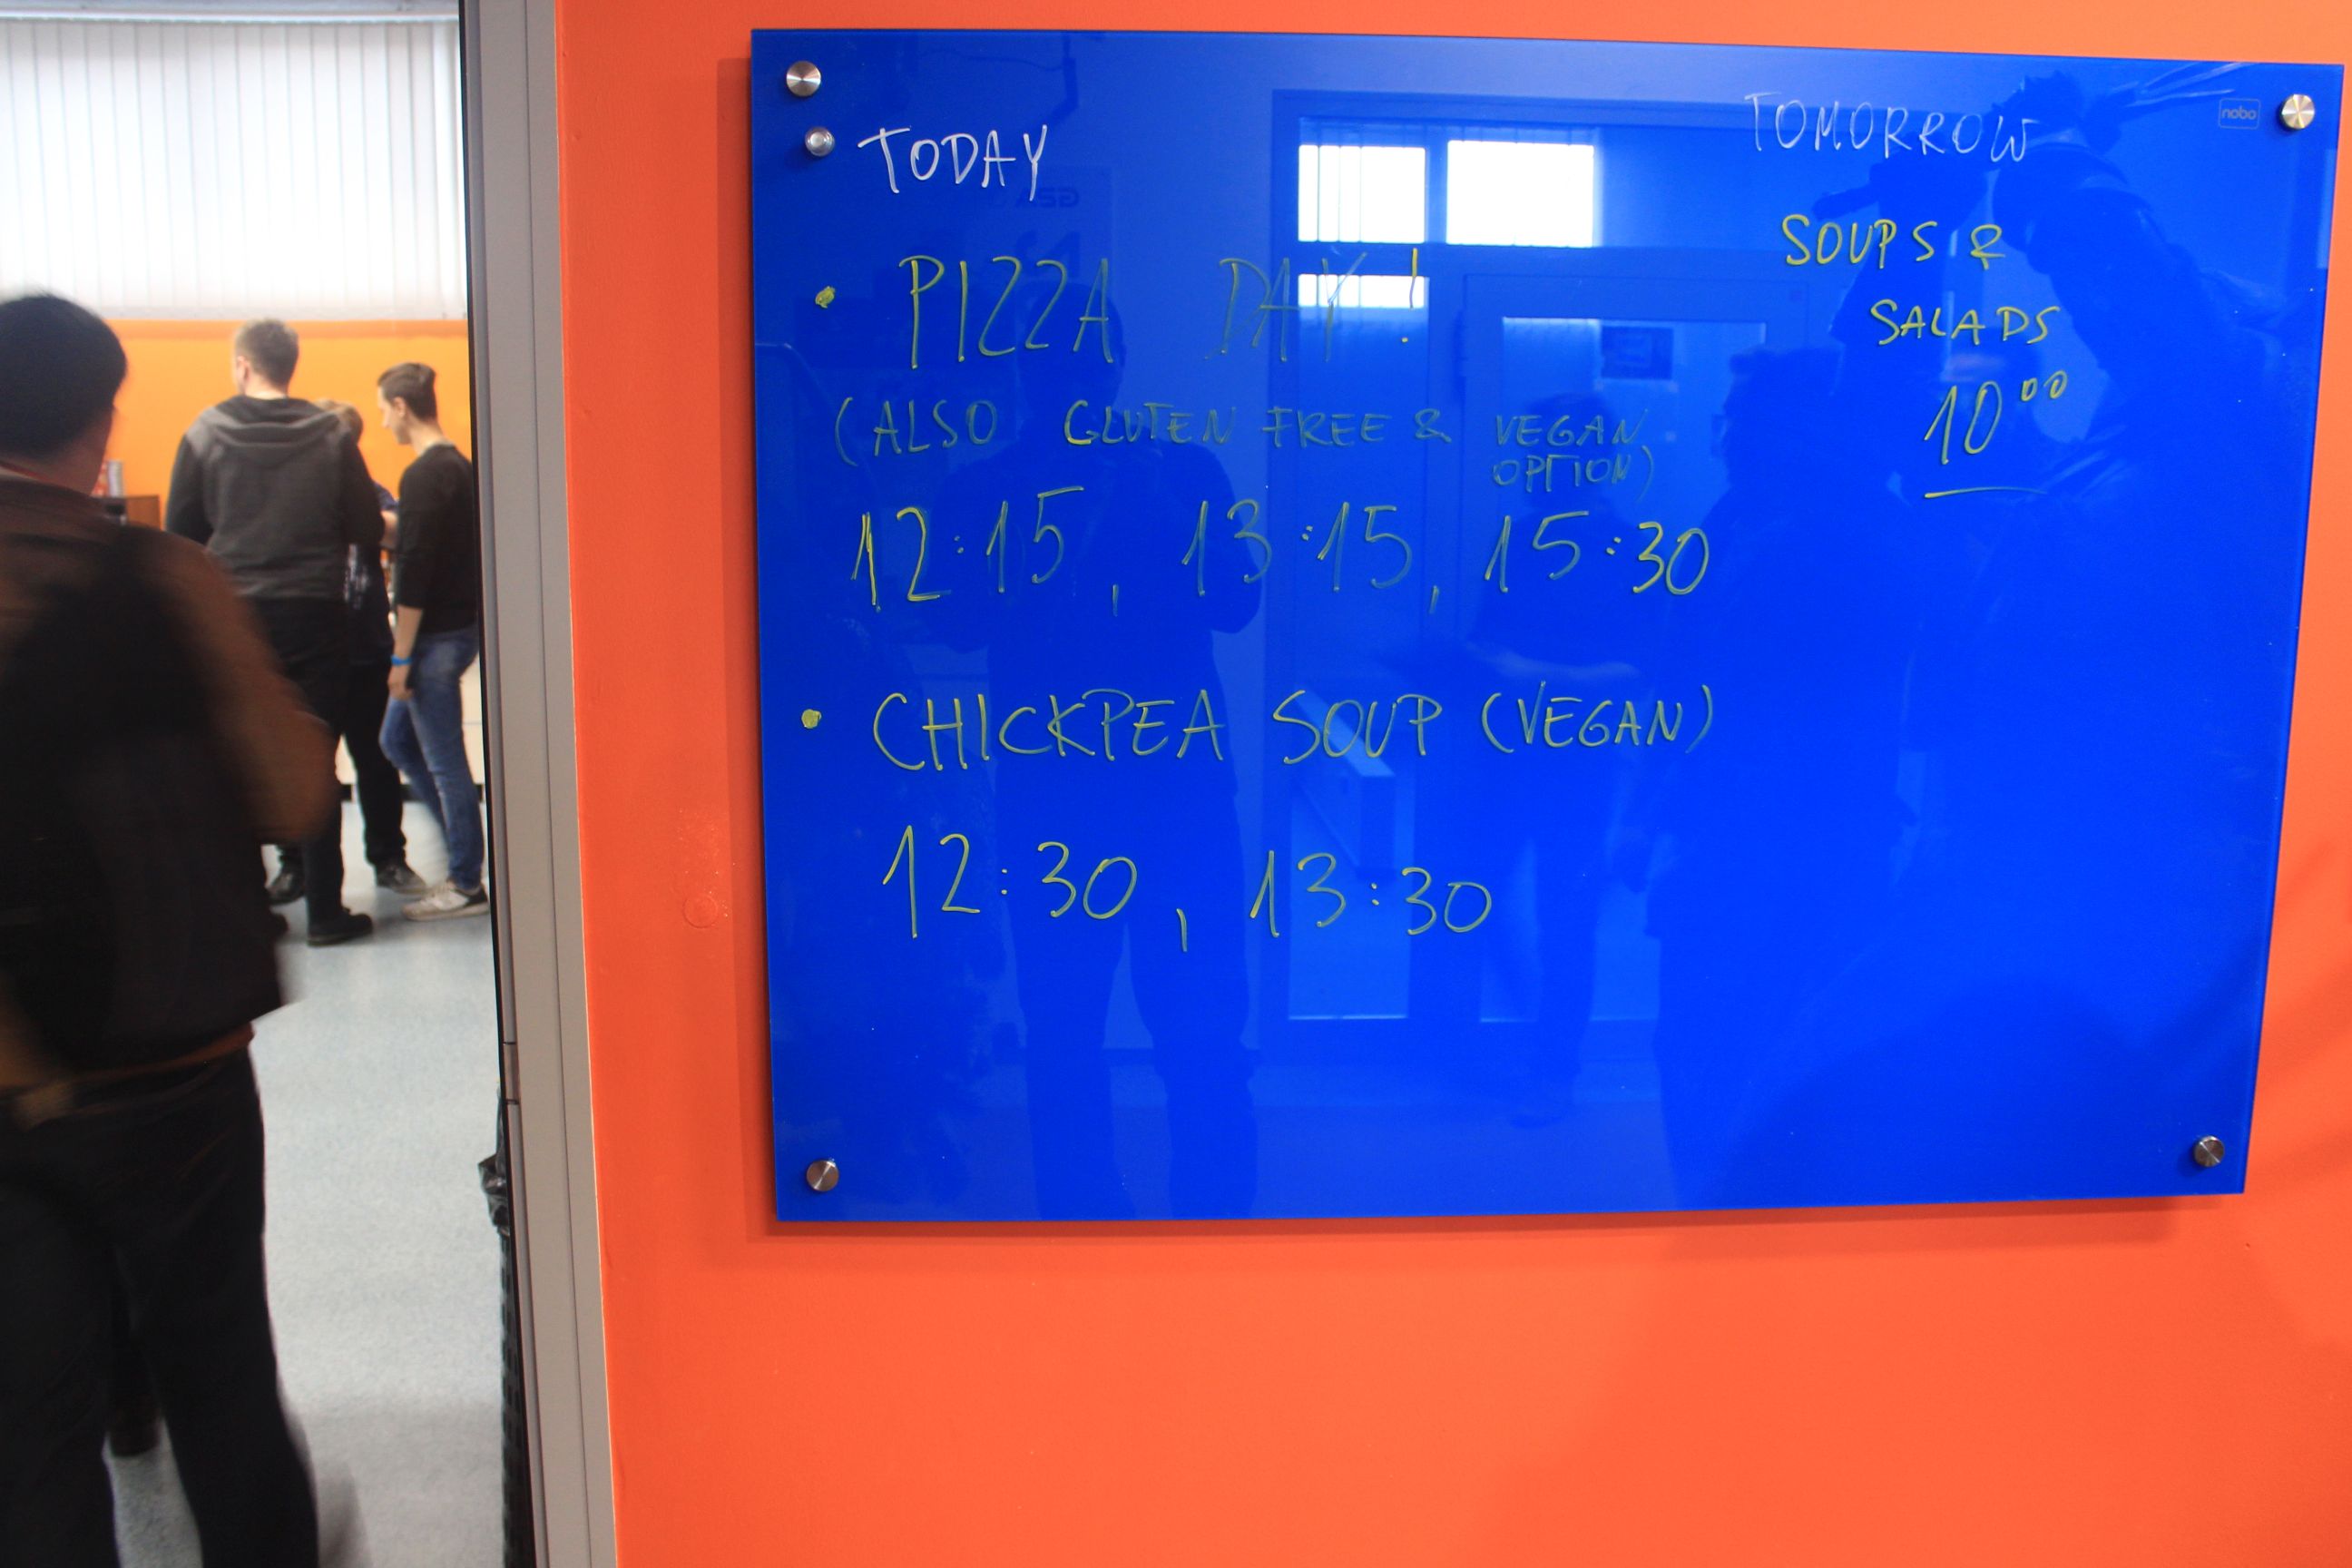 TODAY
• PIZZA DAY!
(ALSO GLUTEN FREE & VEGAN
OPTION)
12:15, 13:15, 15:30
• CHICKPEA SOUP (VEGAN)
12:30, 13:30
TOMORROW
SOUPS &
SALADS
10⁰⁰
nobo